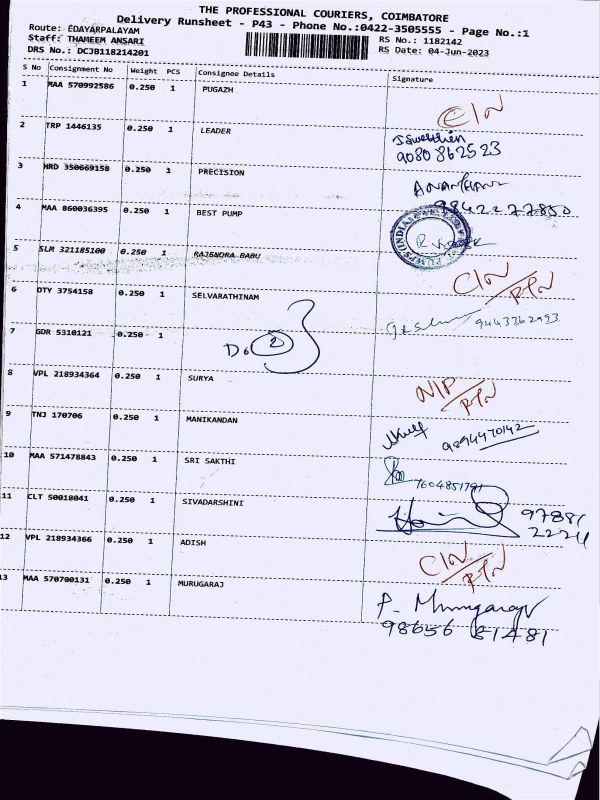 THE PROFESSIONAL COURIERS, COIMBATORE
Delivery Runsheet - P43 - Phone No.:0422-3505555 - Page No.:1
Route: EDAYARPALAYAM
RS No.: 1182142
Staff: THAMEEM ANSARI
RS Date: 04-Jun-2023
DRS No.: DCJB118214201
S No Consignment No Weight PCS Consignee Details Signature
1 MAA 570992586 0.250 1 PUGAZH
2 TRP 1446135 0.250 1 LEADER
9080 862523
3 HRD 350669158 0.250 1 PRECISION
4 MAA 860036395 0.250 1 BEST PUMP
9842277850
5 SLM 321185100 0.250 1 RAJENDRA BABU
6 DTY 3754158 0.250 1 SELVARATHINAM
9443362993
7 GDR 5310121 0.250 1
8 VPL 218934364 0.250 1 SURYA
9 TNJ 170706 0.250 1 MANIKANDAN
9894470142
10 MAA 571478843 0.250 1 SRI SAKTHI
7604851791
11 CLT 50018041 0.250 1 SIVADARSHINI
97881
22211
12 VPL 218934366 0.250 1 ADISH
13 MAA 570700131 0.250 1 MURUGARAJ
P. Murugaraj
98656 81481